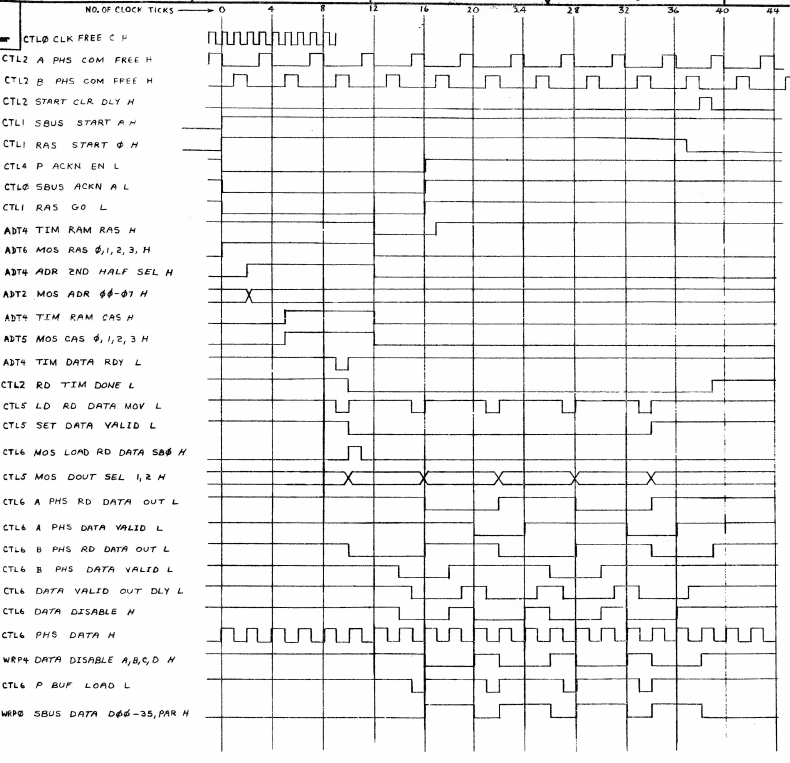 NO. OF CLOCK TICKS 0 4 8 12 16 20 24 28 32 36 40 44
CTLØ CLK FREE C H
CTL2 A PHS COM FREE H
CTL2 B PHS COM FREE H
CTL2 START CLR DLY H
CTL1 SBUS START A H
CTL1 RAS START Ø H
CTL4 P ACKN EN L
CTLØ SBUS ACKN A L
CTL1 RAS GO L
ADT4 TIM RAM RAS H
ADT6 MOS RAS Ø,1,2,3, H
ADT4 ADR 2ND HALF SEL H
ADT2 MOS ADR ØØ-Ø7 H
ADT4 TIM RAM CAS H
ADT5 MOS CAS Ø,1,2,3 H
ADT4 TIM DATA RDY L
CTL2 RD TIM DONE L
CTL5 LD RD DATA MOV L
CTL5 SET DATA VALID L
CTL6 MOS LOAD RD DATA SBØ H
CTL5 MOS DOUT SEL 1,2 H
CTL6 A PHS RD DATA OUT L
CTL6 A PHS DATA VALID L
CTL6 B PHS RD DATA OUT L
CTL6 B PHS DATA VALID L
CTL6 DATA VALID OUT DLY L
CTL6 DATA DISABLE H
CTL6 PHS DATA H
WRP4 DATA DISABLE A,B,C,D H
CTL6 P BUF LOAD L
WRPØ SBUS DATA DØØ-35, PAR H